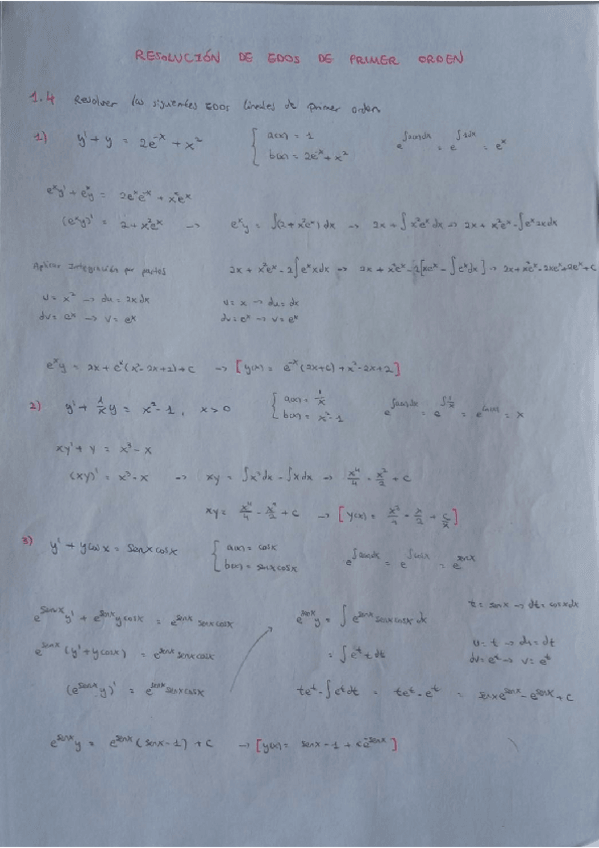 RESOLUCIÓN DE EDOS DE PRIMER ORDEN
1.4 Resolver las siguientes EDOs lineales de primer orden
1) y' + y = 2e^-x + x^2 { a(x) = 1 e^∫a(x)dx = e^∫1dx = e^x
b(x) = 2e^-x + x^2
e^x y' + e^x y = 2e^x e^-x + x^2 e^x
(e^x y)' = 2 + x^2 e^x → e^x y = ∫(2 + x^2 e^x) dx → 2x + ∫x^2 e^x dx → 2x + x^2 e^x - ∫e^x 2x dx
Aplicar integración por partes 2x + x^2 e^x - 2∫e^x x dx → 2x + x^2 e^x - 2[xe^x - ∫e^x dx] → 2x + x^2 e^x - 2xe^x + 2e^x + C
u = x^2 → du = 2x dx u = x → du = dx
dv = e^x → v = e^x dv = e^x → v = e^x
e^x y = 2x + e^x (x^2 - 2x + 2) + C → [y(x) = e^-x (2x + C) + x^2 - 2x + 2]
2) y' + 1/x y = x^2 - 1, x > 0 { a(x) = 1/x e^∫a(x)dx = e^∫1/x = e^ln(x) = x
b(x) = x^2 - 1
xy' + y = x^3 - x
(xy)' = x^3 - x → xy = ∫x^3 dx - ∫x dx → x^4/4 - x^2/2 + C
xy = x^4/4 - x^2/2 + C → [y(x) = - x/2 + C/x]
3) y' + y cosx = senx cosx { a(x) = cosx e^∫a(x)dx = e^∫cosx = e^senx
b(x) = senx cosx
e^senx y' + e^senx y cosx = e^senx senx cosx e^senx y = ∫e^senx senx cosx dx t = senx → dt = cosx dx
e^senx (y' + y cosx) = e^senx senx cosx = ∫e^t t dt u = t → du = dt
dv = e^t → v = e^t
(e^senx y)' = e^senx senx cosx te^t - ∫e^t dt = te^t - e^t = senx e^senx - e^senx + C
e^senx y = e^senx (senx - 1) + C → [y(x) = senx - 1 + Ce^-senx]